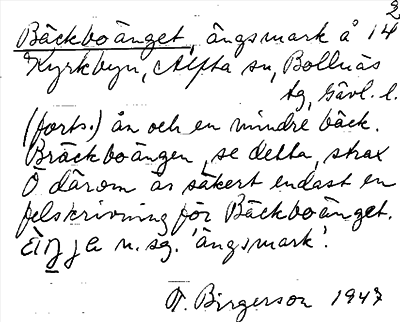 2
Bäckboänget, ängsmark å 14
Kyrkbyn, Alfta sn, Bollnäs
tg, Gävl. l.
(forts.) ån och en mindre bäck.
Bräckboängen, se detta, strax
Ö därom är säkert endast en
felskrivning för Bäckboänget.
n. sg. 'ängsmark'.
T. Birgerson 1947